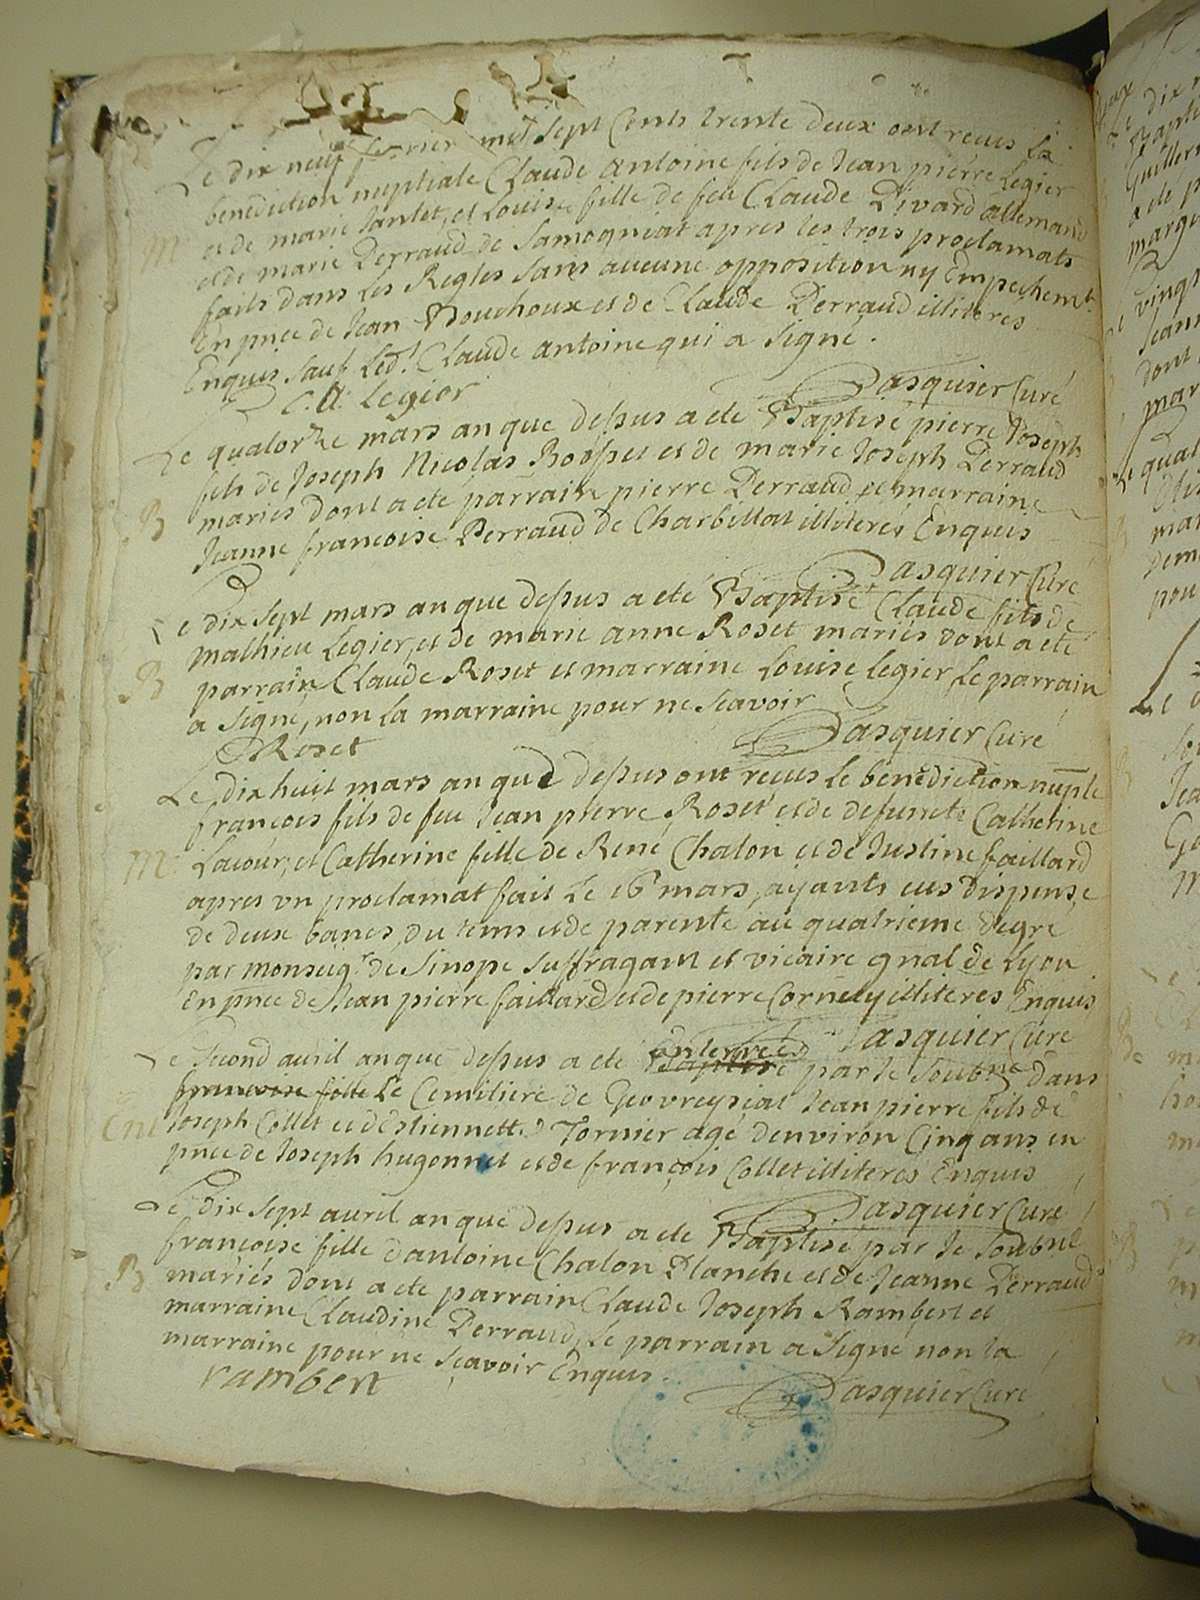 Le dix neuf fevrier mil sept Cents trente deux ont recus la
benediction nuptiale Claude antoine fils de Jean pierre Legier
M et de marie Janlet, et Louise fille de feu Claude Divard allemand
et de marie Perraud de Samogniat apres les trois proclamats
faits dans les Regles sans aucune opposition ny Empechemt
En pnce de Jean Bouchoux et de Claude Perraud illiteres
Enquis sauf Ledt Claude antoine qui a signé.
C. A. Legier
Pasquier Curé
Le quatorze mars an que dessus a eté Baptisé pierre Joseph
fils de Joseph Nicolas Rosset et de marie Joseph Perraud
B mariés dont a eté parrain pierre Perraud et marraine
Jeanne francoise Perraud de Charbillat illiterés Enquis
Pasquier Curé
Le dix sept mars an que dessus a eté Baptisé Claude fils de
mathieu Legier, et de marie anne Roset mariés dont a eté
B parrain Claude Roset et marraine Louise Legier, Le parrain
a signé, non la marraine pour ne scavoir
Roset
Pasquier Curé
Le dix huit mars an que dessus ont recus le bénédiction nuple
francois fils de feu Jean pierre Roset et de defuncte Catherine
M Lacour, et Catherine fille de René Chalon et de Justine faillard
apres un proclamat fait Le 16 mars, ayants eus dispense
de deux bancs, du tems et de parenté au quatrieme degré
par monseigr de Sinope Suffragant et vicaire gnal de Lyon
En pnce de Jean pierre faillard et de pierre Cornely illiteres Enquis
Pasquier Curé
Le second avril an que dessus a eté Baptisé enterreé par le soubné dans
francoise fille Le Cemitiere de Geovreysiat Jean pierre fils de
Ent Joseph Collet et d'Estiennette Tornier agé d'environ Cinq ans en
pnce de Joseph hugonnet et de françois Collet illiteres Enquis
Pasquier Curé
Le dix sept avril an que dessus a eté Baptisé par le soubné
françoise fille d'antoine Chalon Planche et de Jeanne Perraud
B mariés dont a eté parrain Claude Joseph Rambert et
marraine Claudine Perraud, Le parrain a signé non la
marraine pour ne sçavoir Enquis.
rambert
Pasquier Curé